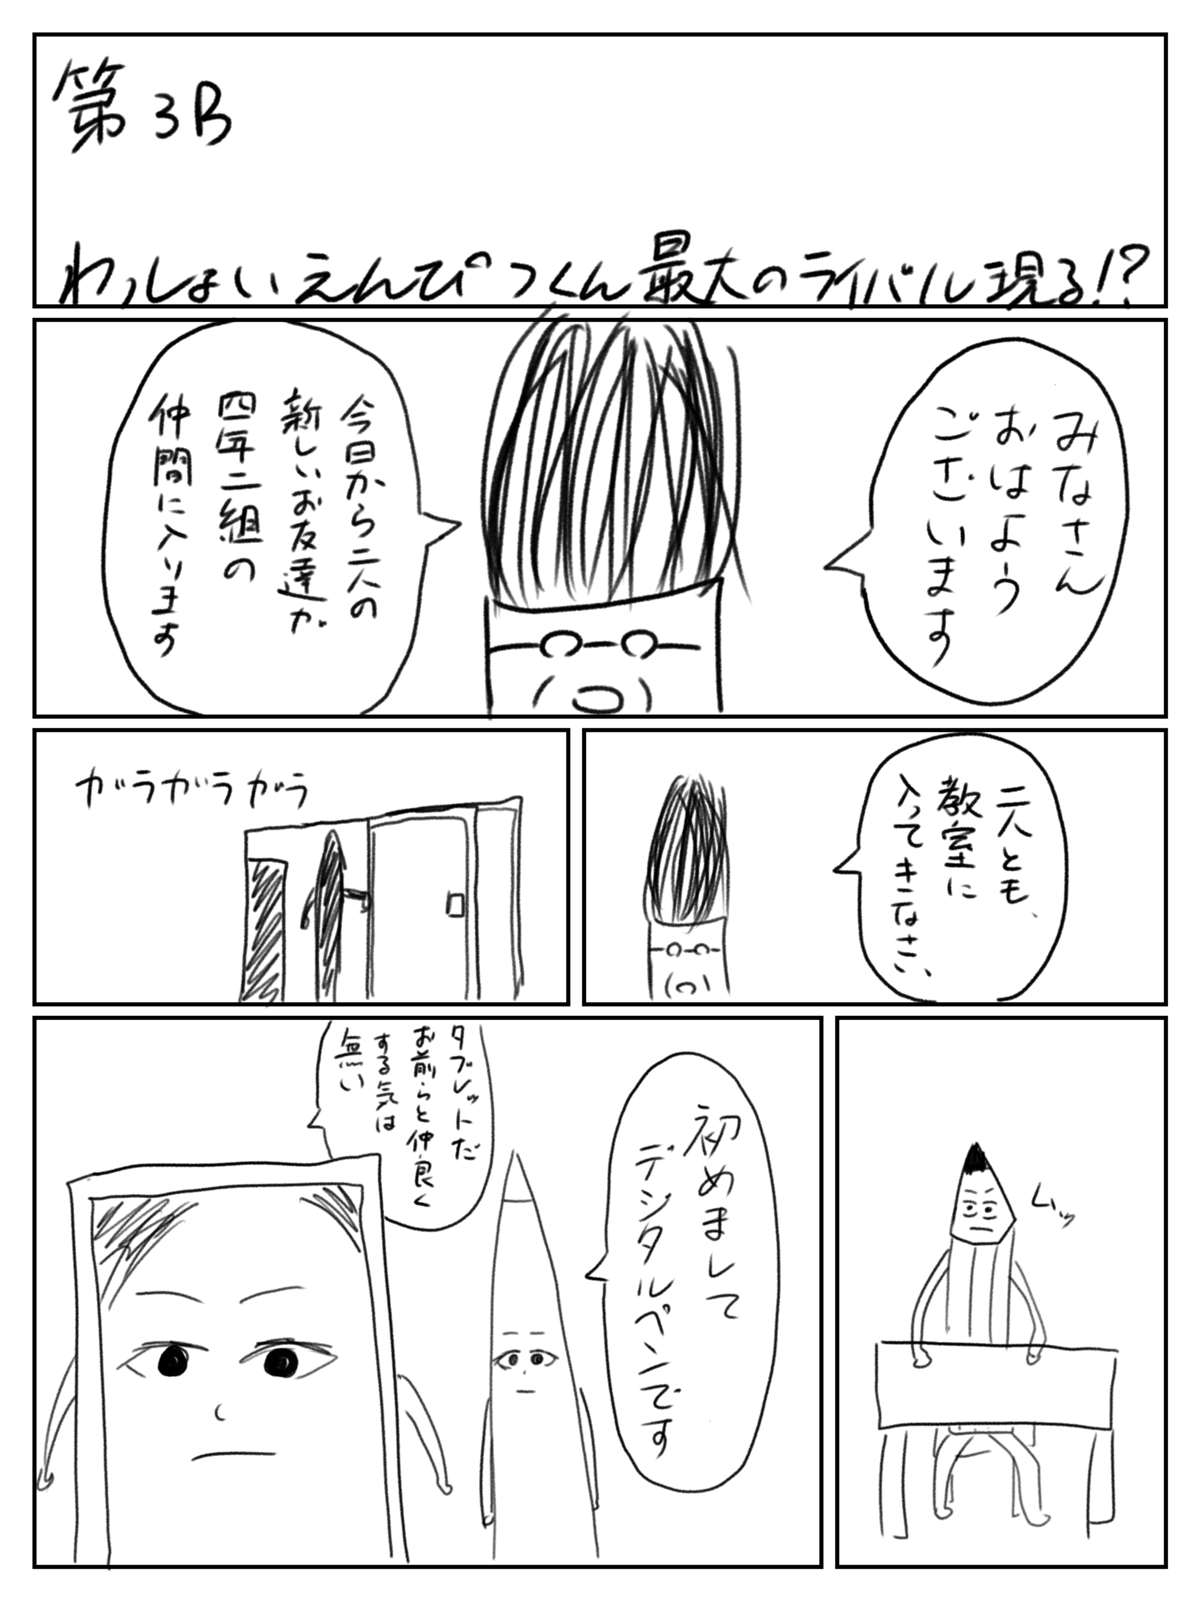 第3B
わっしょいえんぴつくん最大のライバル現る!?
みなさん
おはよう
ございます
今日から二人の
新しいお友達が
四年二組の
仲間に入ります
二人とも、
教室に
入ってきなさい
ガラガラガラ
ムッ
初めまして
デジタルペンです
タブレットだ
お前らと仲良く
する気は
無い